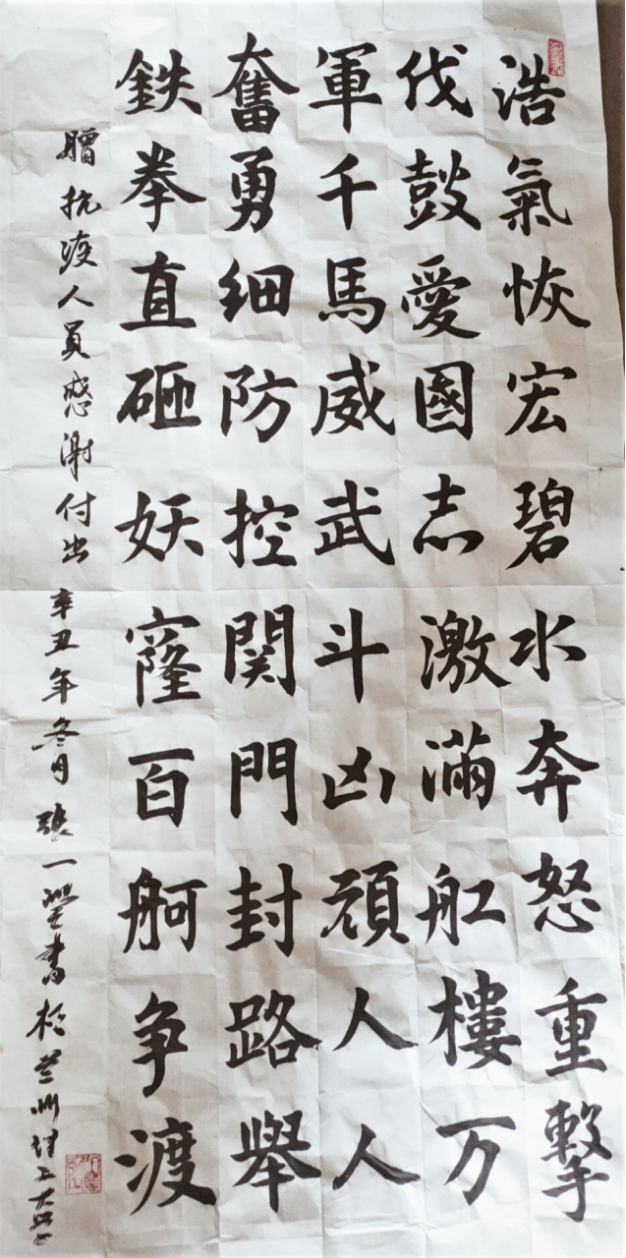 浩氣恢宏碧水奔怒重擊
伐鼓愛國志激滿舡樓万
軍千馬威武斗凶頑人人
奮勇細防控関門封路舉
鉄拳直砸妖窿百舸争渡
贈抗疫人員感謝付出 辛丑年冬月 張一瑩書於蘭州理工大學